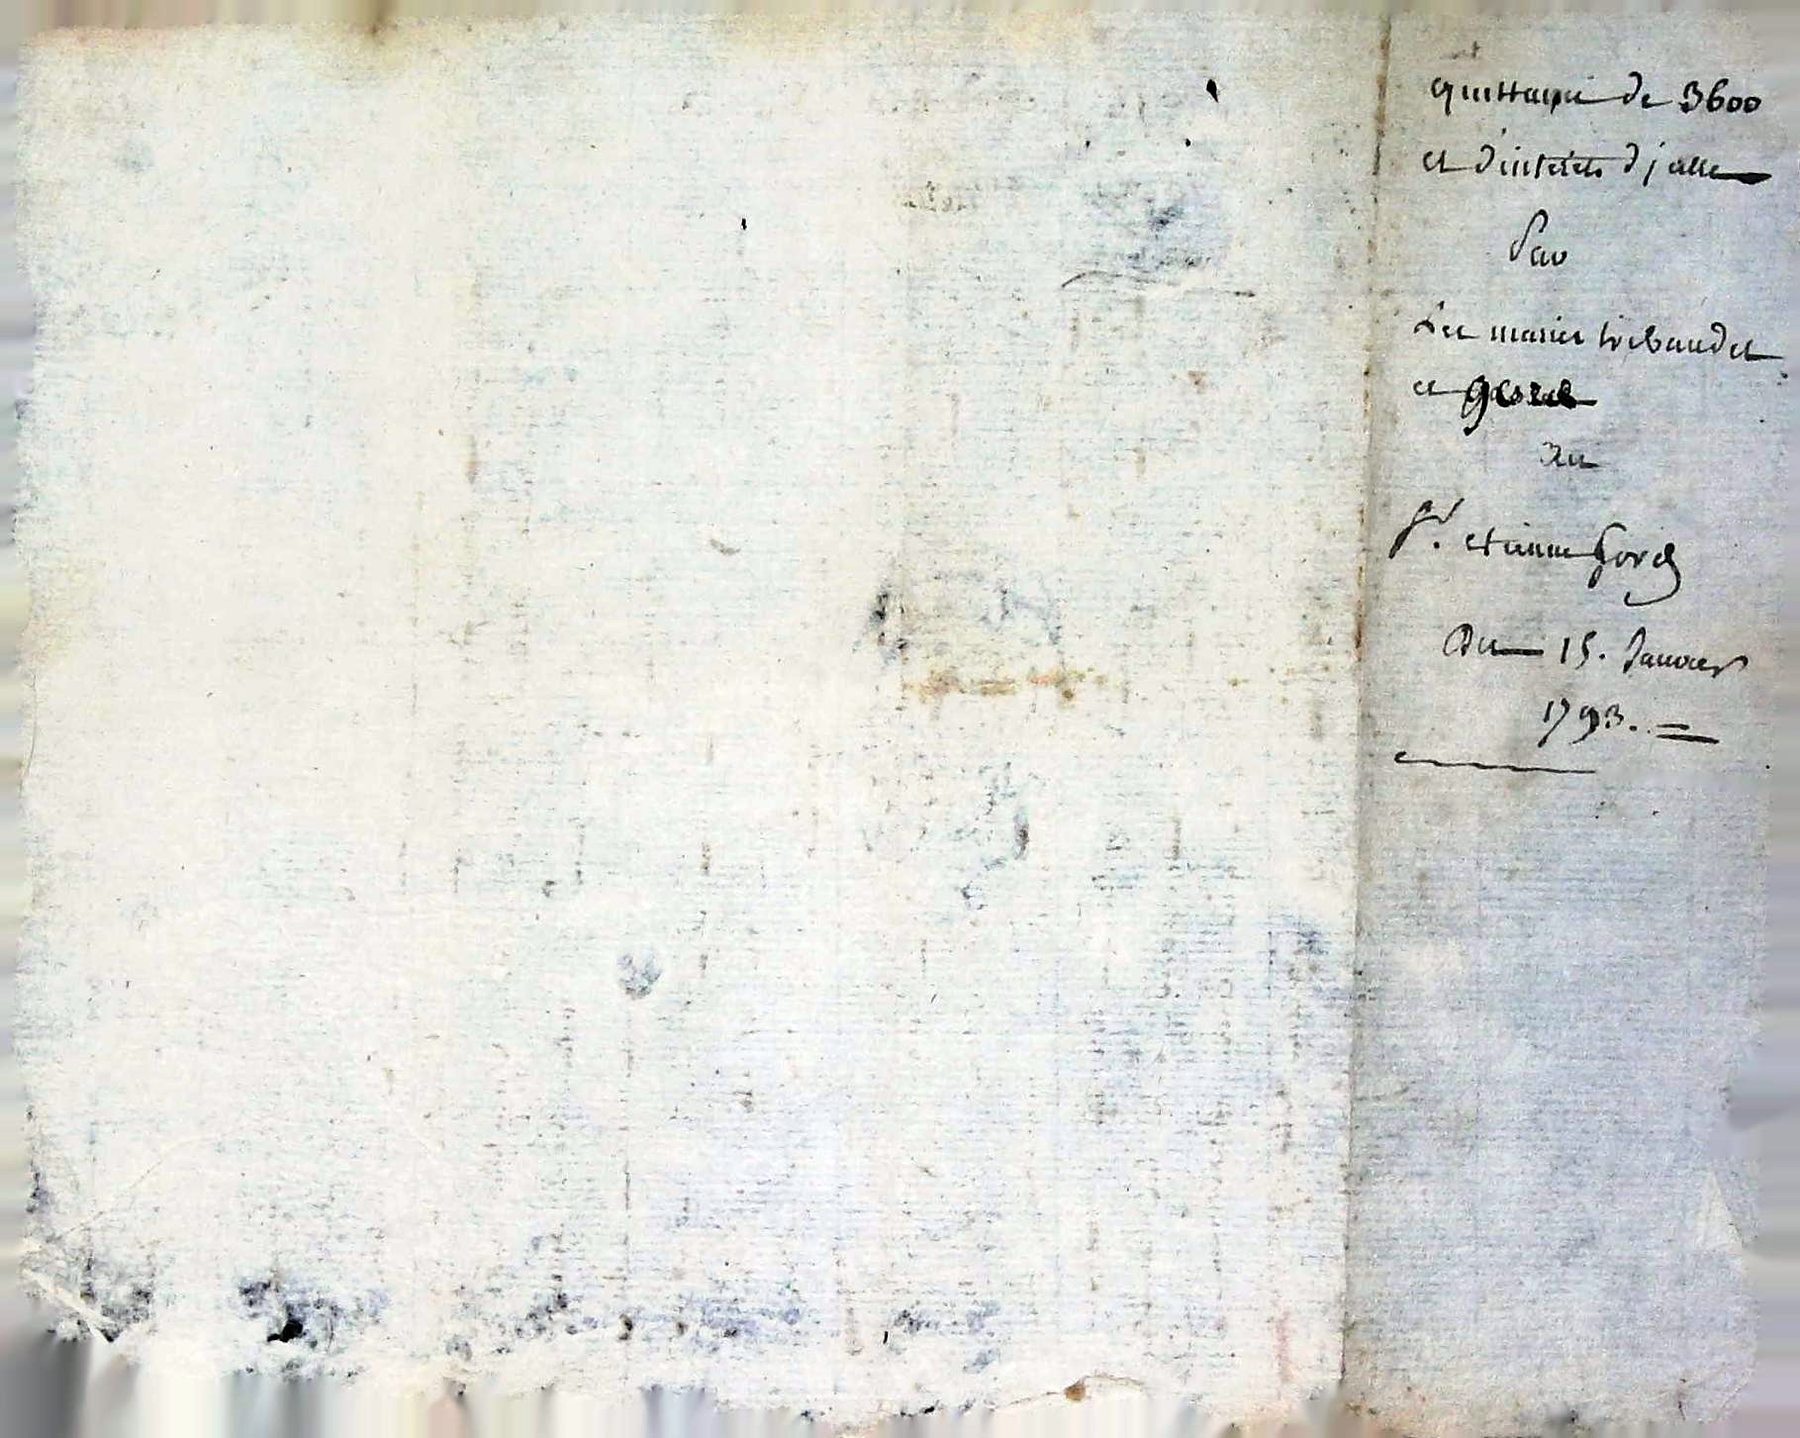 quittance de 3600
et d'intérêts d'jcelle
Par
Les mariés tribaudet
et
au
Sr. etienne
Du 15. Janvier
1793. =